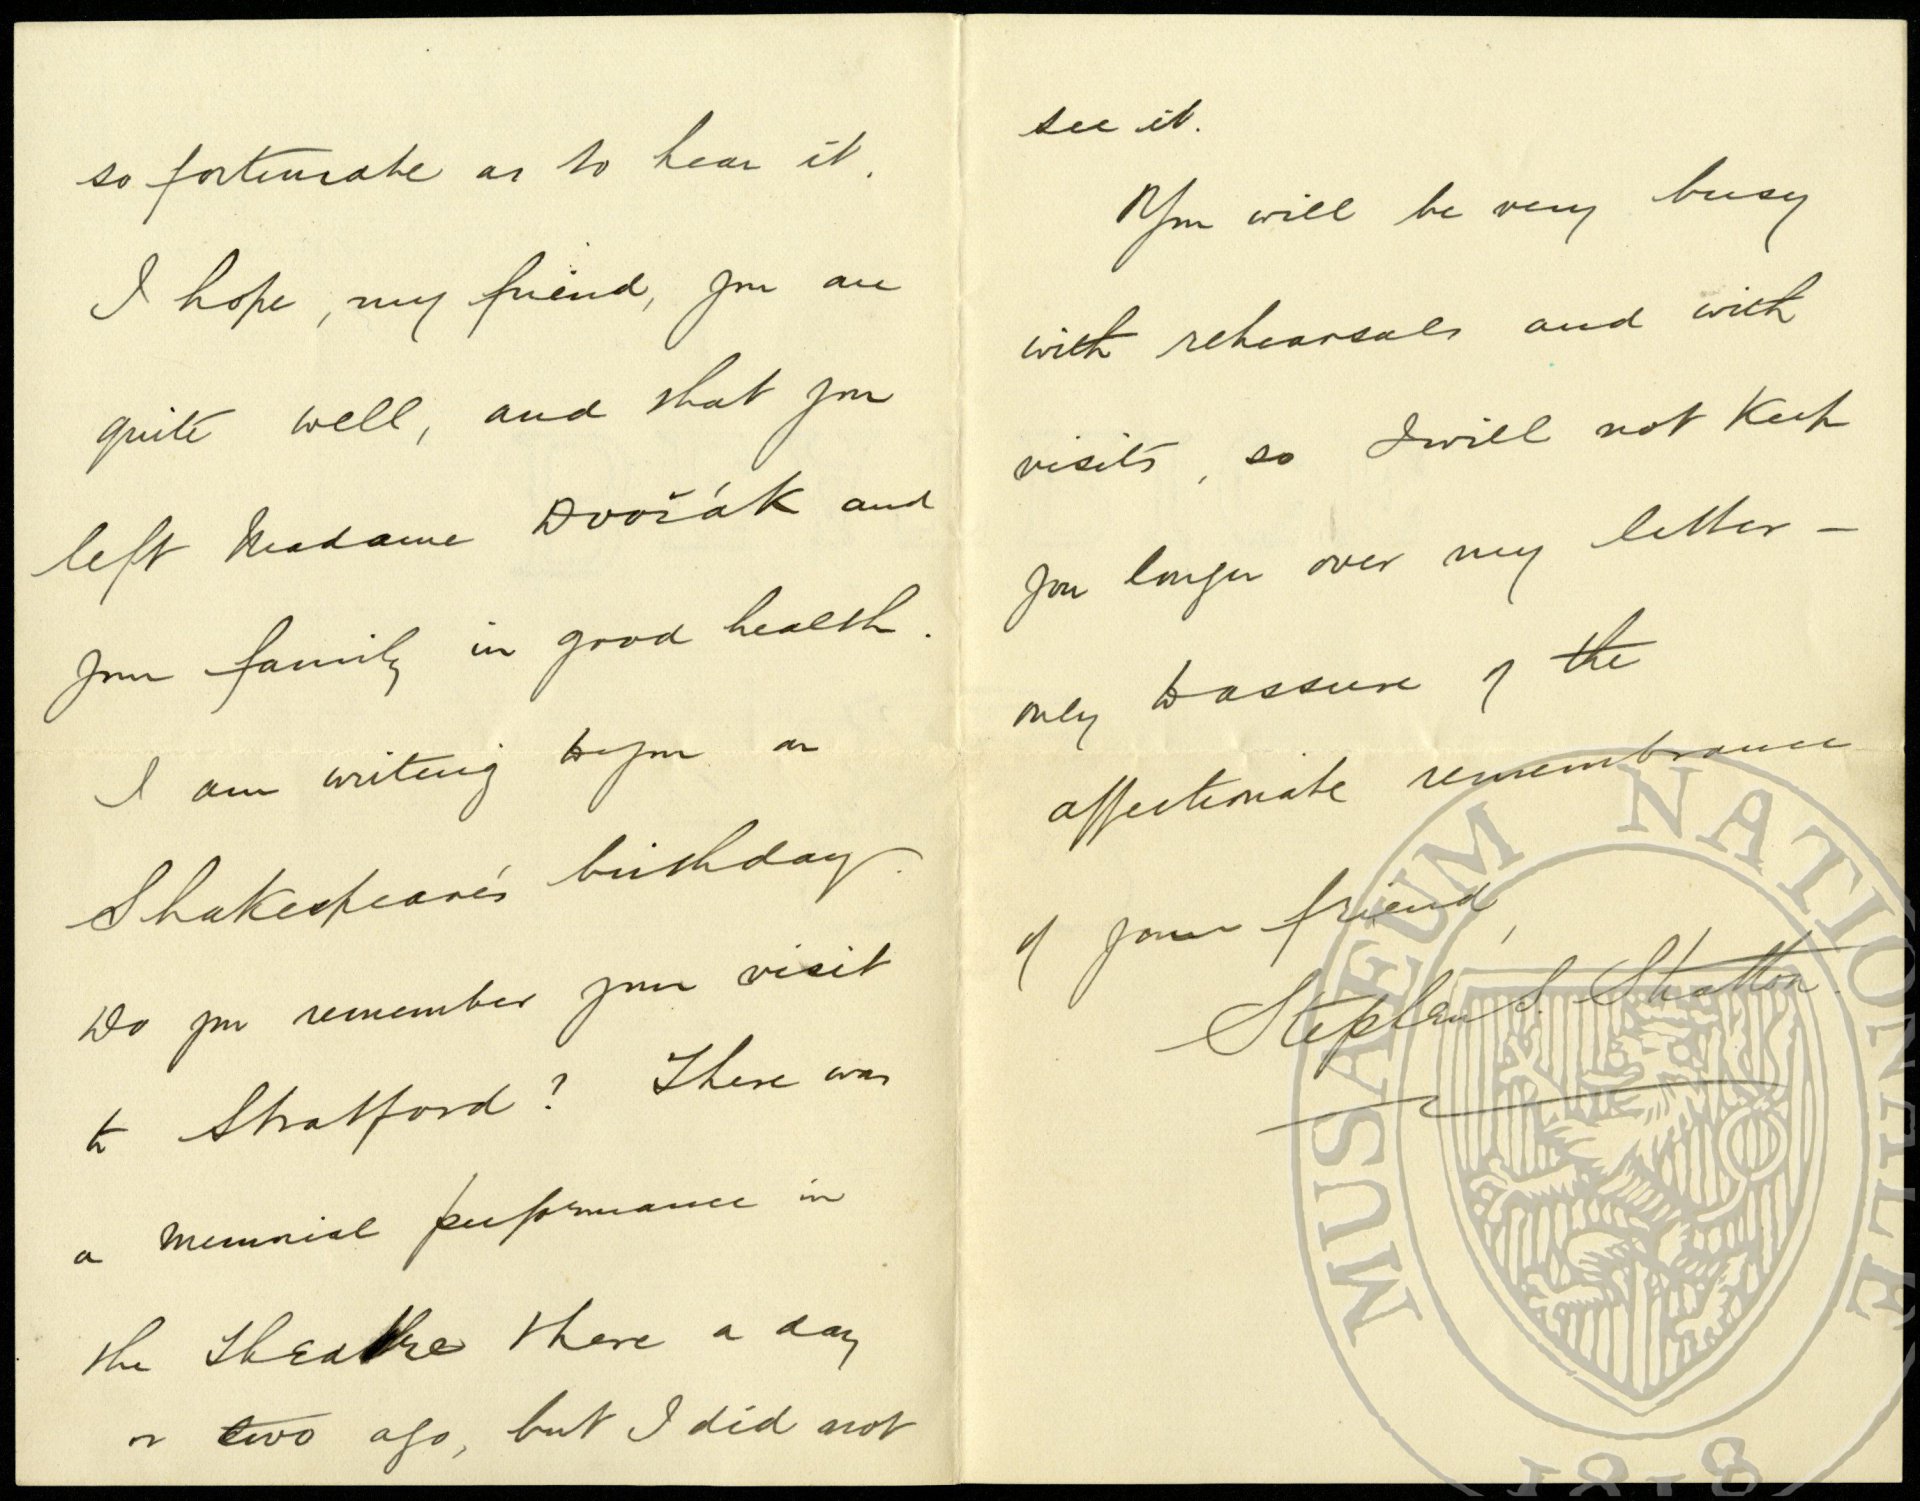 so fortunate as to hear it.
I hope, my friend, you are
quite well, and that you
left Madame Dvořák and
your family in good health.
I am writing to you on
Shakespeare's birthday.
Do you remember your visit
to Stratford? There was
a memorial performance in
the Theatre there a day
or two ago, but I did not
see it.
You will be very busy
with rehearsals and with
visits, so I will not keep
you longer over my letter —
only to assure of the
affectionate remembrance
of your friend,
Stephen S. Stratton.
MUSAEUM NATIONALE
1818